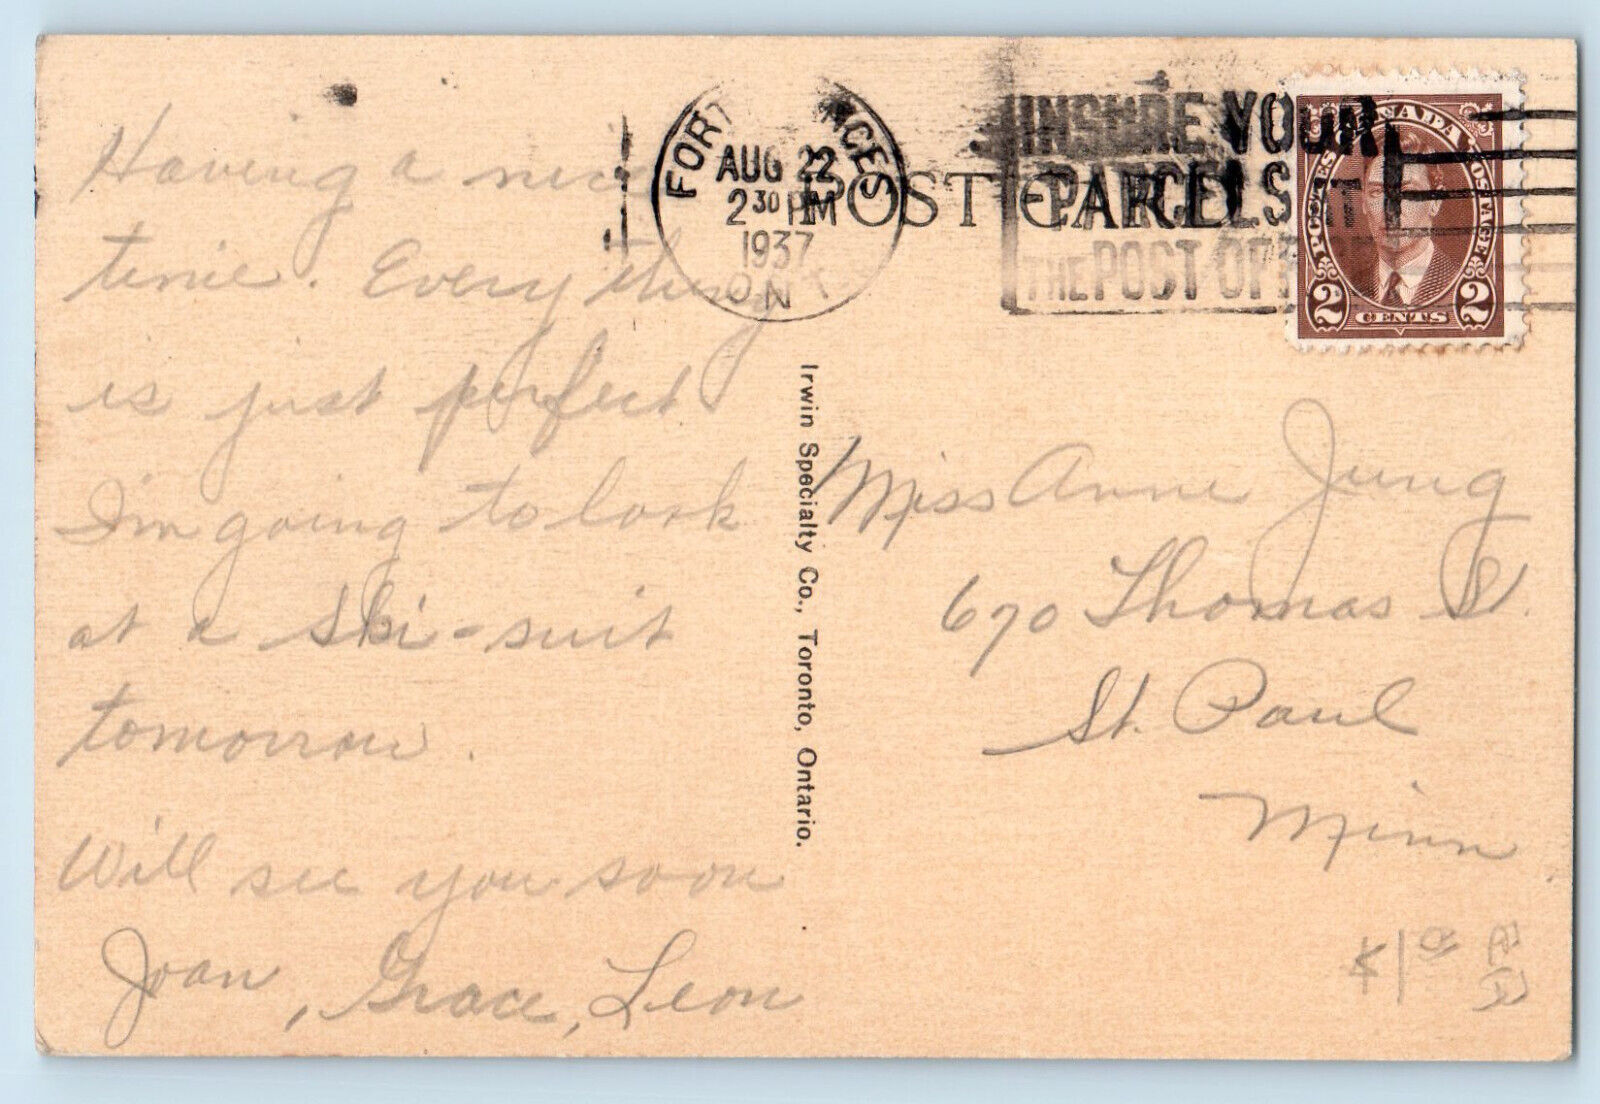 Having a nice
time. Everything
is just perfect
I'm going to look
at a ski-suit
tomorrow.
Will see you soon
Joan, Grace, Leon
FORT FRANCES
AUG 22
2 30 PM
1937
ONT
POST CARD
INSURE YOUR
PARCELS AT
THE POST OFFICE
CANADA
POSTES POSTAGE
2 CENTS 2
Irwin Specialty Co., Toronto, Ontario.
Miss Anne Jung
670 Thomas St.
St. Paul
Minn
$1